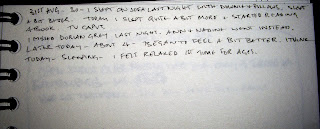 31ST AUG. SO - I SLEPT ON SOFA LAST NIGHT WITH DUVET + PILLOWS. SLEPT
A BIT BETTER - TODAY I SLEPT QUITE A BIT MORE + STARTED READING
A BOOK - TV CAPUT.
FINISHED DORIAN GRAY LAST NIGHT.
LATER TODAY - ABOUT 4 - I BEGAN TO FEEL A BIT BETTER. I THINK
TODAY - SLEEPING - I FELT RELAXED 1ST TIME FOR AGES.